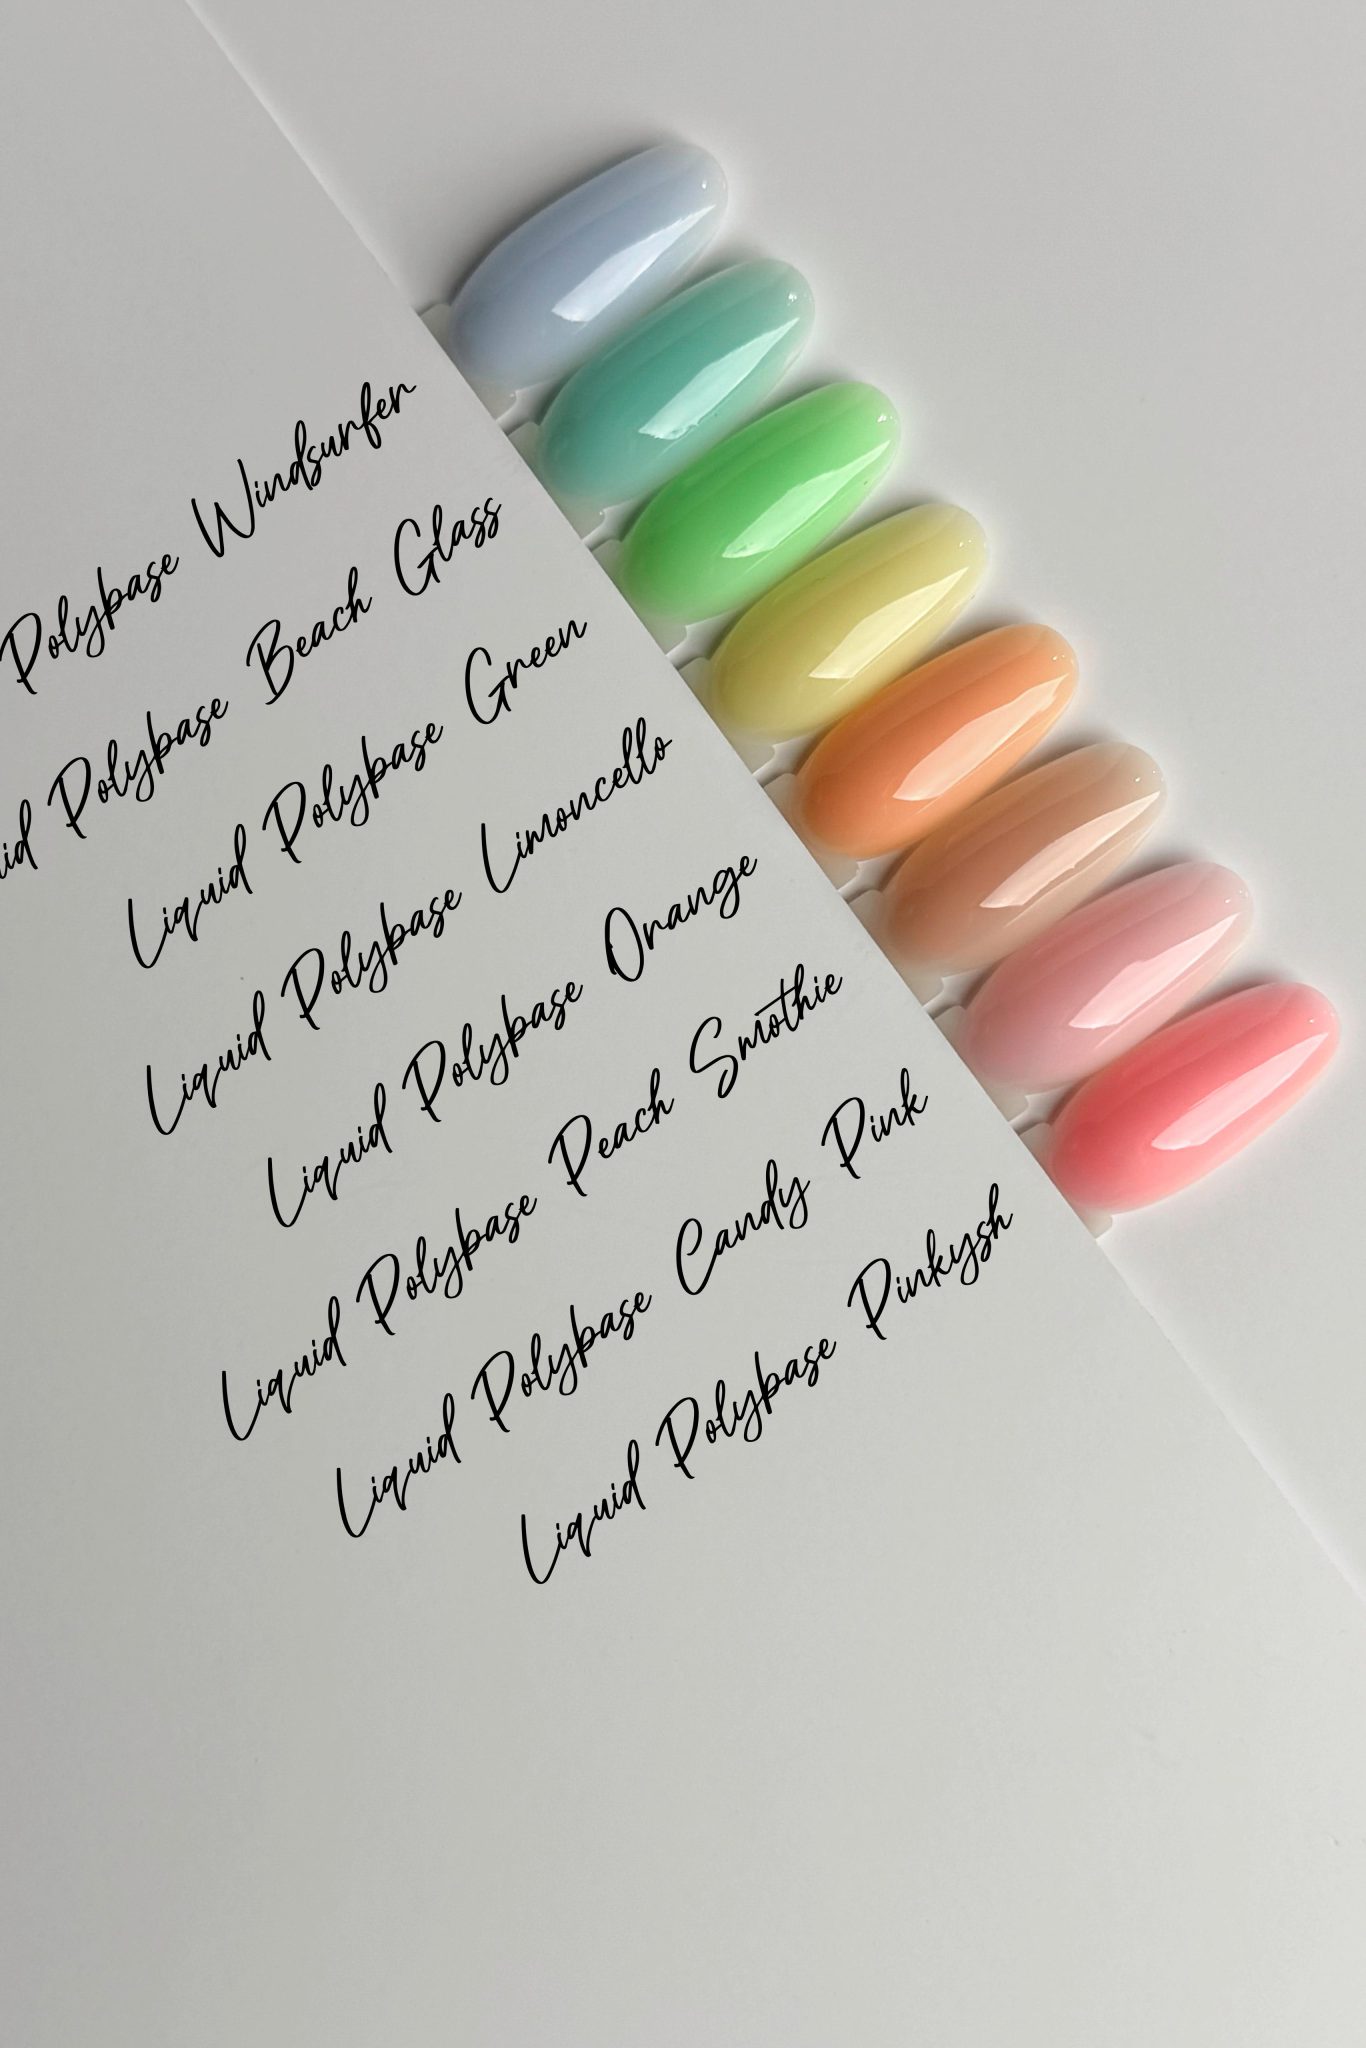 Polybase Windsurfer
uid Polybase Beach Glass
Liquid Polybase Green
Liquid Polybase Limoncello
Liquid Polybase Orange
Liquid Polybase Peach Smothie
Liquid Polybase Candy Pink
Liquid Polybase Pinkysh